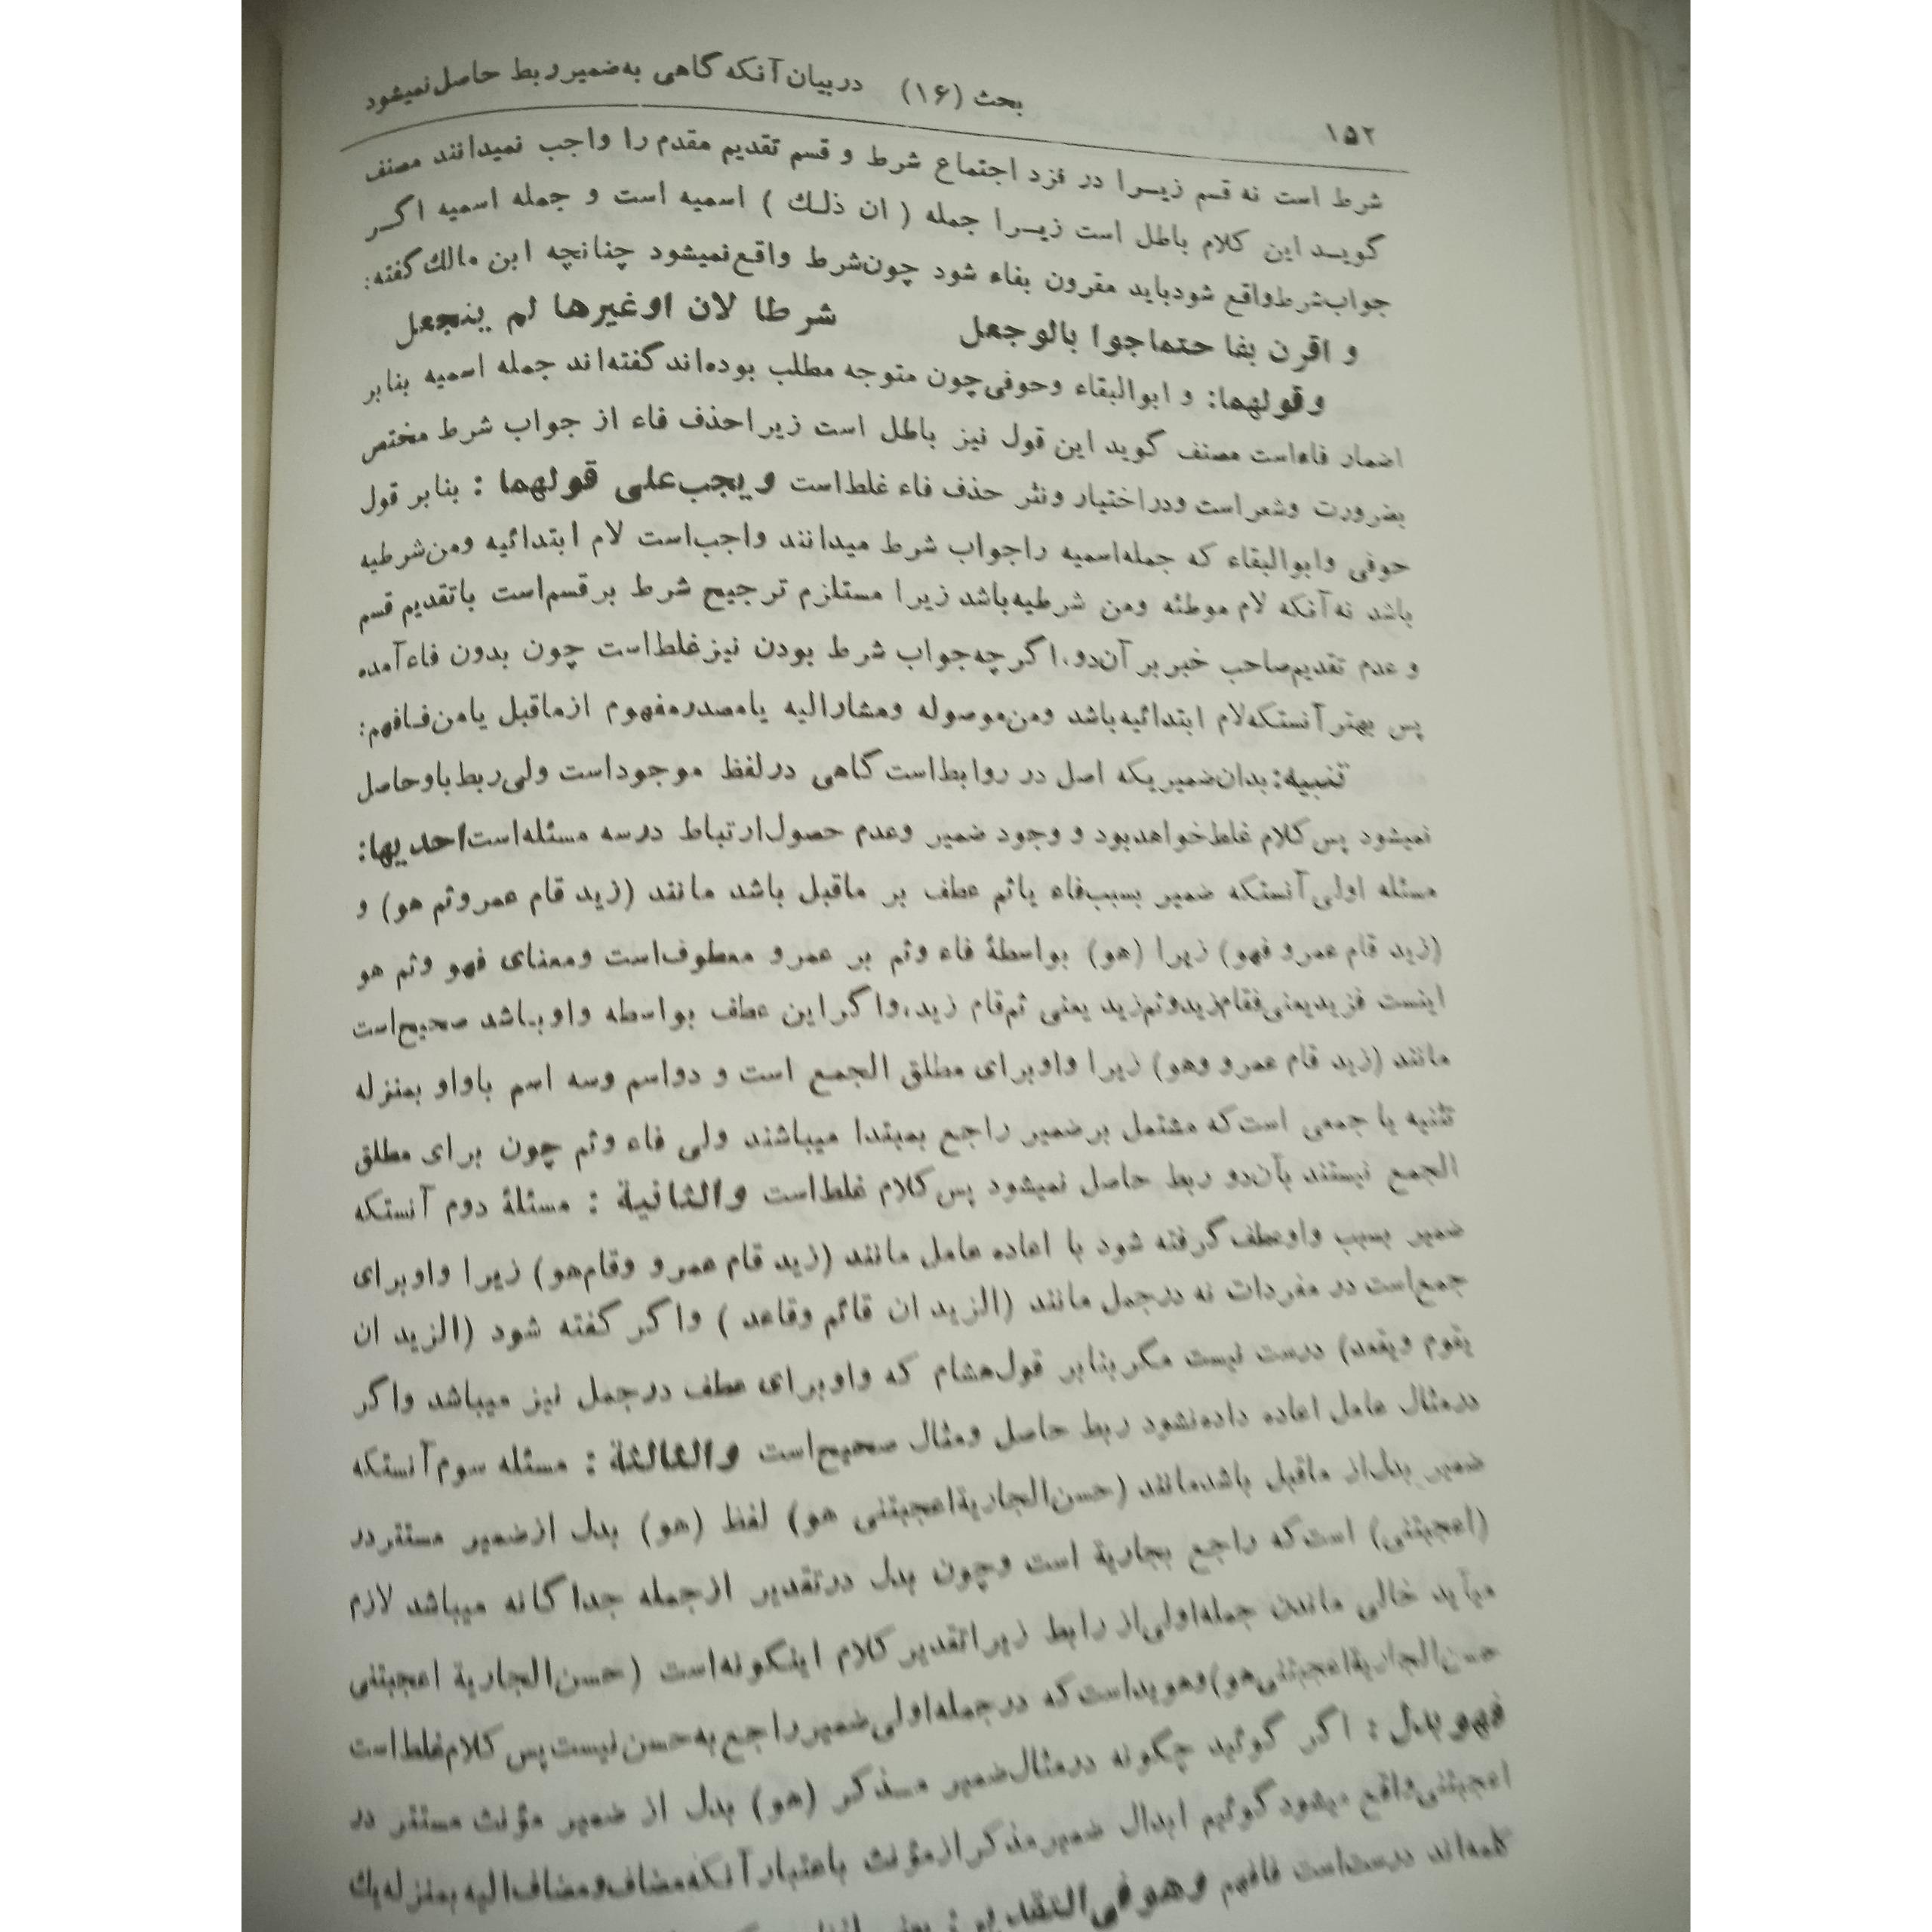 ۱۵۲ بحث (۱۶) در بیان آنکه گاهی به ضمیر ربط حاصل نمیشود
شرط است نه قسم زیــرا در نزد اجتماع شرط و قسم تقدیم مقدم را واجب نمیدانند مصنف
گویــد این کلام باطل است زیــرا جمله ( ان ذلــك ) اسمیه است و جمله اسمیه اگــر
جواب شرط واقع شود باید مقرون بفاء شود چون شرط واقع نمیشود چنانچه ابن مالك گفته:
و اقرن بفا حتما جوا بالو جعل شرطا لان او غیرها لم ینجعل
و قولهما: و ابوالبقاء وحوفی چون متوجه مطلب بوده‌اند گفته‌اند جمله اسمیه بنابر
اضمار فاء است مصنف گوید این قول نیز باطل است زیرا حذف فاء از جواب شرط مختص
بضرورت وشعر است ودر اختیار ونثر حذف فاء غلط است ویجب علی قولهما : بنابر قول
حوفی وابوالبقاء که جمله اسمیه را جواب شرط میدانند واجب است لام ابتدائیه ومن شرطیه
باشد نه آنکه لام موطئه ومن شرطیه باشد زیرا مستلزم ترجیح شرط بر قسم است با تقدیم قسم
و عدم تقدیم صاحب خبر بر آن دو، اگر چه جواب شرط بودن نیز غلط است چون بدون فاء آمده
پس بهتر آنستکه لام ابتدائیه باشد ومن موصوله ومشار الیه یا مصدر مفهوم از ماقبل یا من فــافهم:
تنبیه: بدان ضمیریکه اصل در روابط است گاهی در لفظ موجود است ولی ربط باو حاصل
نمیشود پس کلام غلط خواهد بود و وجود ضمیر وعدم حصول ارتباط در سه مسئله است احدیها:
مسئله اولی آنستکه ضمیر بسبب فاء یا ثم عطف بر ماقبل باشد مانند (زید قام عمرو ثم هو) و
(زید قام عمرو فهو) زیرا (هو) بواسطهٔ فاء وثم بر عمرو معطوف است ومعنای فهو وثم هو
اینست فزید یعنی فقام زید وثم زید یعنی ثم قام زید، واگر این عطف بواسطه واو بــاشد صحیح است
مانند (زید قام عمرو وهو) زیرا واو برای مطلق الجمع است و دو اسم وسه اسم باواو بمنزله
تثنیه یا جمعی است که مشتمل بر ضمیر راجع بمبتدا میباشند ولی فاء وثم چون برای مطلق
الجمع نیستند بآن دو ربط حاصل نمیشود پس کلام غلط است والثانیة : مسئلهٔ دوم آنستکه
ضمیر بسبب واو عطف گرفته شود با اعاده عامل مانند (زید قام عمرو وقام هو) زیرا واو برای
جمع است در مفردات نه در جمل مانند (الزیدان قائم وقاعد ) واگر گفته شود (الزیدان
یقوم ویقعد) درست نیست مگر بنابر قول هشام که واو برای عطف در جمل نیز میباشد واگر
در مثال عامل اعاده داده نشود ربط حاصل ومثال صحیح است والثالثة : مسئله سوم آنستکه
ضمیر بدل از ماقبل باشد مانند (حسن الجاریة اعجبتنی هو) لفظ (هو) بدل از ضمیر مستتر در
(اعجبتنی) است که راجع بجاریة است وچون بدل در تقدیر از جمله جداگانه میباشد لازم
میآید خالی ماندن جمله اولی از رابط زیرا تقدیر کلام اینگونه است (حسن الجاریة اعجبتنی
حسن الجاریة اعجبتنی هو) وهویداست که در جمله اولی ضمیر راجع به حسن نیست پس کلام غلط است
فهو بدل : اگر گوئید چگونه در مثال ضمیر مــذکر (هو) بدل از ضمیر مؤنث مستتر در
اعجبتنی واقع میشود گوئیم ابدال ضمیر مذکر از مؤنث باعتبار آنکه مضاف ومضاف الیه بمنزله یك
کلمه‌اند درست است فافهم وهو فی التقدیر :